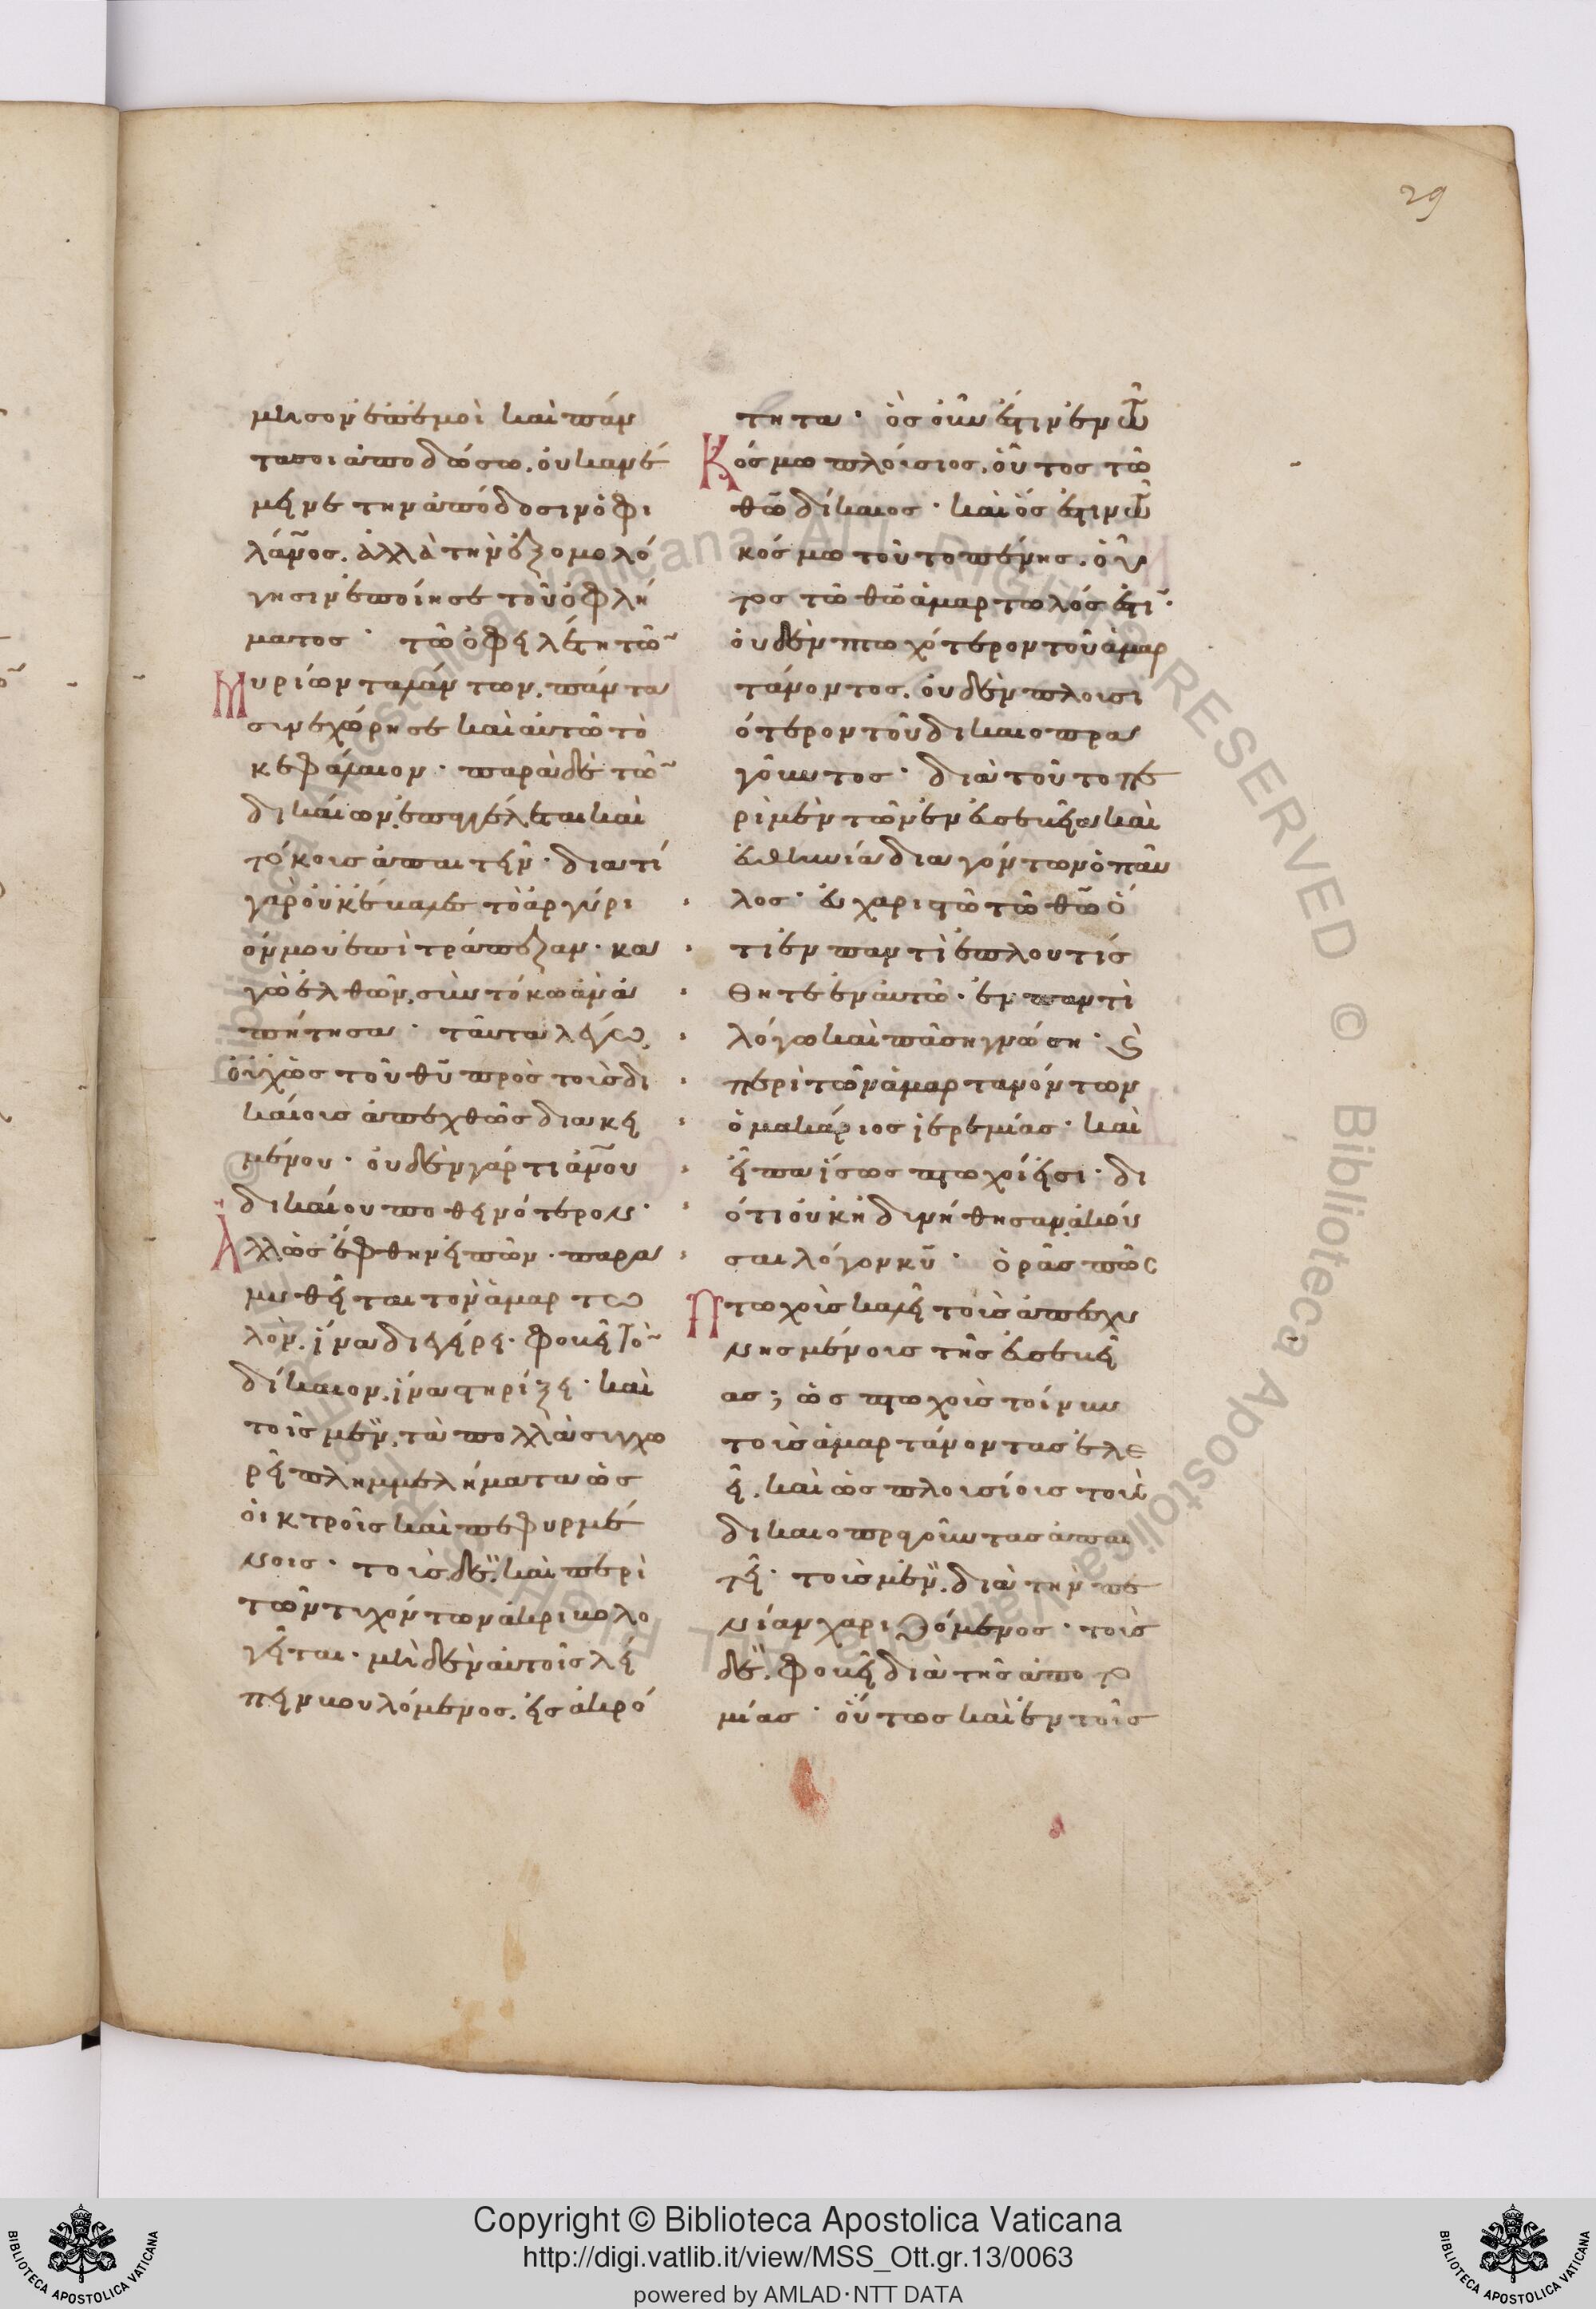 29
μησον ἐπεμοὶ καὶ πάν
τα σοι ἀποδώσω. οὐκ ανέ
μεινε τὴν ἀπόδοσιν ὁ φι
λάνος. ἀλλὰ τὴν ἐξομολό
γησιν ἐποίησε τοῦ ὀφλή
ματος· τῶ ὀφειλέτη τῶ
Μυρίων ταλάντων. πάντα
συνεχώρησε καὶ αὐτῶ τὸ
κεφάλαιον· παρὰ δὲ τῶ
δικαίων. ἐπαγγέλεται καὶ
τόκοις ἀπαιτεῖν· διατί
γὰρ οὐκ έκαλες τὸ ἀργύρι
όν μου ἐπὶ τράπεζαν· κα
γὼ ἐλθὼν, σὺν τόκω ἂν ἀ
πήτησα· ταῦτα λέγω,
οὐχ ὡς τοῦ θυ πρὸς τοὺς δι
καίους ἀπεχθῶς διακει
μένου· οὐδὲν γάρ τι ἀνου
δικαίου ποθεινότερον·
Ἀλλ' ὡς ἔφθην εἰπὼν· παρα
μυθεῖται τὸν ἁμαρτω
λὸν. ἵνα διεγείρει· φοβεῖ τὸ
δίκαιον. ἵνα στηρίζει· καὶ
τοῖς μὲν, τὰ πολλὰ συγχω
ρεῖ πλημμελήματα ὡς
οἰκτροῖς καὶ πεφυρμέ
νοις· τοὺς δὲ, καὶ περὶ
τῶν τυχόντων ἀκριβολο
γεῖται· μηδὲν αὐτοῖς λεί
πειν βουλόμενος. εἰς ἀκρό
τητα· ὃς οὖν ἐστιν ἐν τῶ
Κόσμω πλούσιος. οὗτος τῶ
θῶ δίκαιος· καὶ ὅς ἐστιν τῶ
κόσμω τοῦτο πένης. οὗ
τος τῶ θῶ ἁμαρτωλός ἐστι·
οὐδὲν πτωχότερον τοῦ ἁμαρ
τάνοντος. οὐδὲν πλουσι
ότερον τοῦ δικαιοπρα
γοῦντος· διὰ τοῦτο πε
ρὶ μὲν τῶν ἐν εὐσεβεία καὶ
εὐθυνία διαγόντων ὁ παῦ
λος· εὐχαριστῶ τῶ θῶ ὅ
τι ἐν παντὶ ἐπλουτίσ
θητε ἐν αὐτῶ· ἐν παντὶ
λόγω καὶ πάση γνώσει·
περὶ τῶν ἁμαρτανόντων
ὁ μακάριος ἱερεμίας· καὶ
εἶπα ἴσως πτωχοί εἰσι· δι
ότι οὐκ ἠδυνήθησαν ἀκοῦ
σαι λόγον κυ· ὁρᾶς πῶς
Πτωχοὺς καλεῖ τοὺς ἀπεχω
νησμένοις τῆς εὐσεβεί
ας; ὡς πτωχοὺς τοίνυν
τοὺς ἁμαρτάνοντας ἐλε
εῖ, καὶ ὡς πλουσίοις τοὺς
δικαιοπραγοῦντας ἀπαι
τεῖ· τοὺς μὲν, διὰ τὴν πε
νίαν χαριζόμενος· τοὺς
δὲ, φοβεῖ διὰ τῆς ἀποτο
μίας· οὕτως καὶ ἐν τοῖς
Copyright © Biblioteca Apostolica Vaticana
http://digi.vatlib.it/view/MSS_Ott.gr.13/0063
powered by AMLAD·NTT DATA